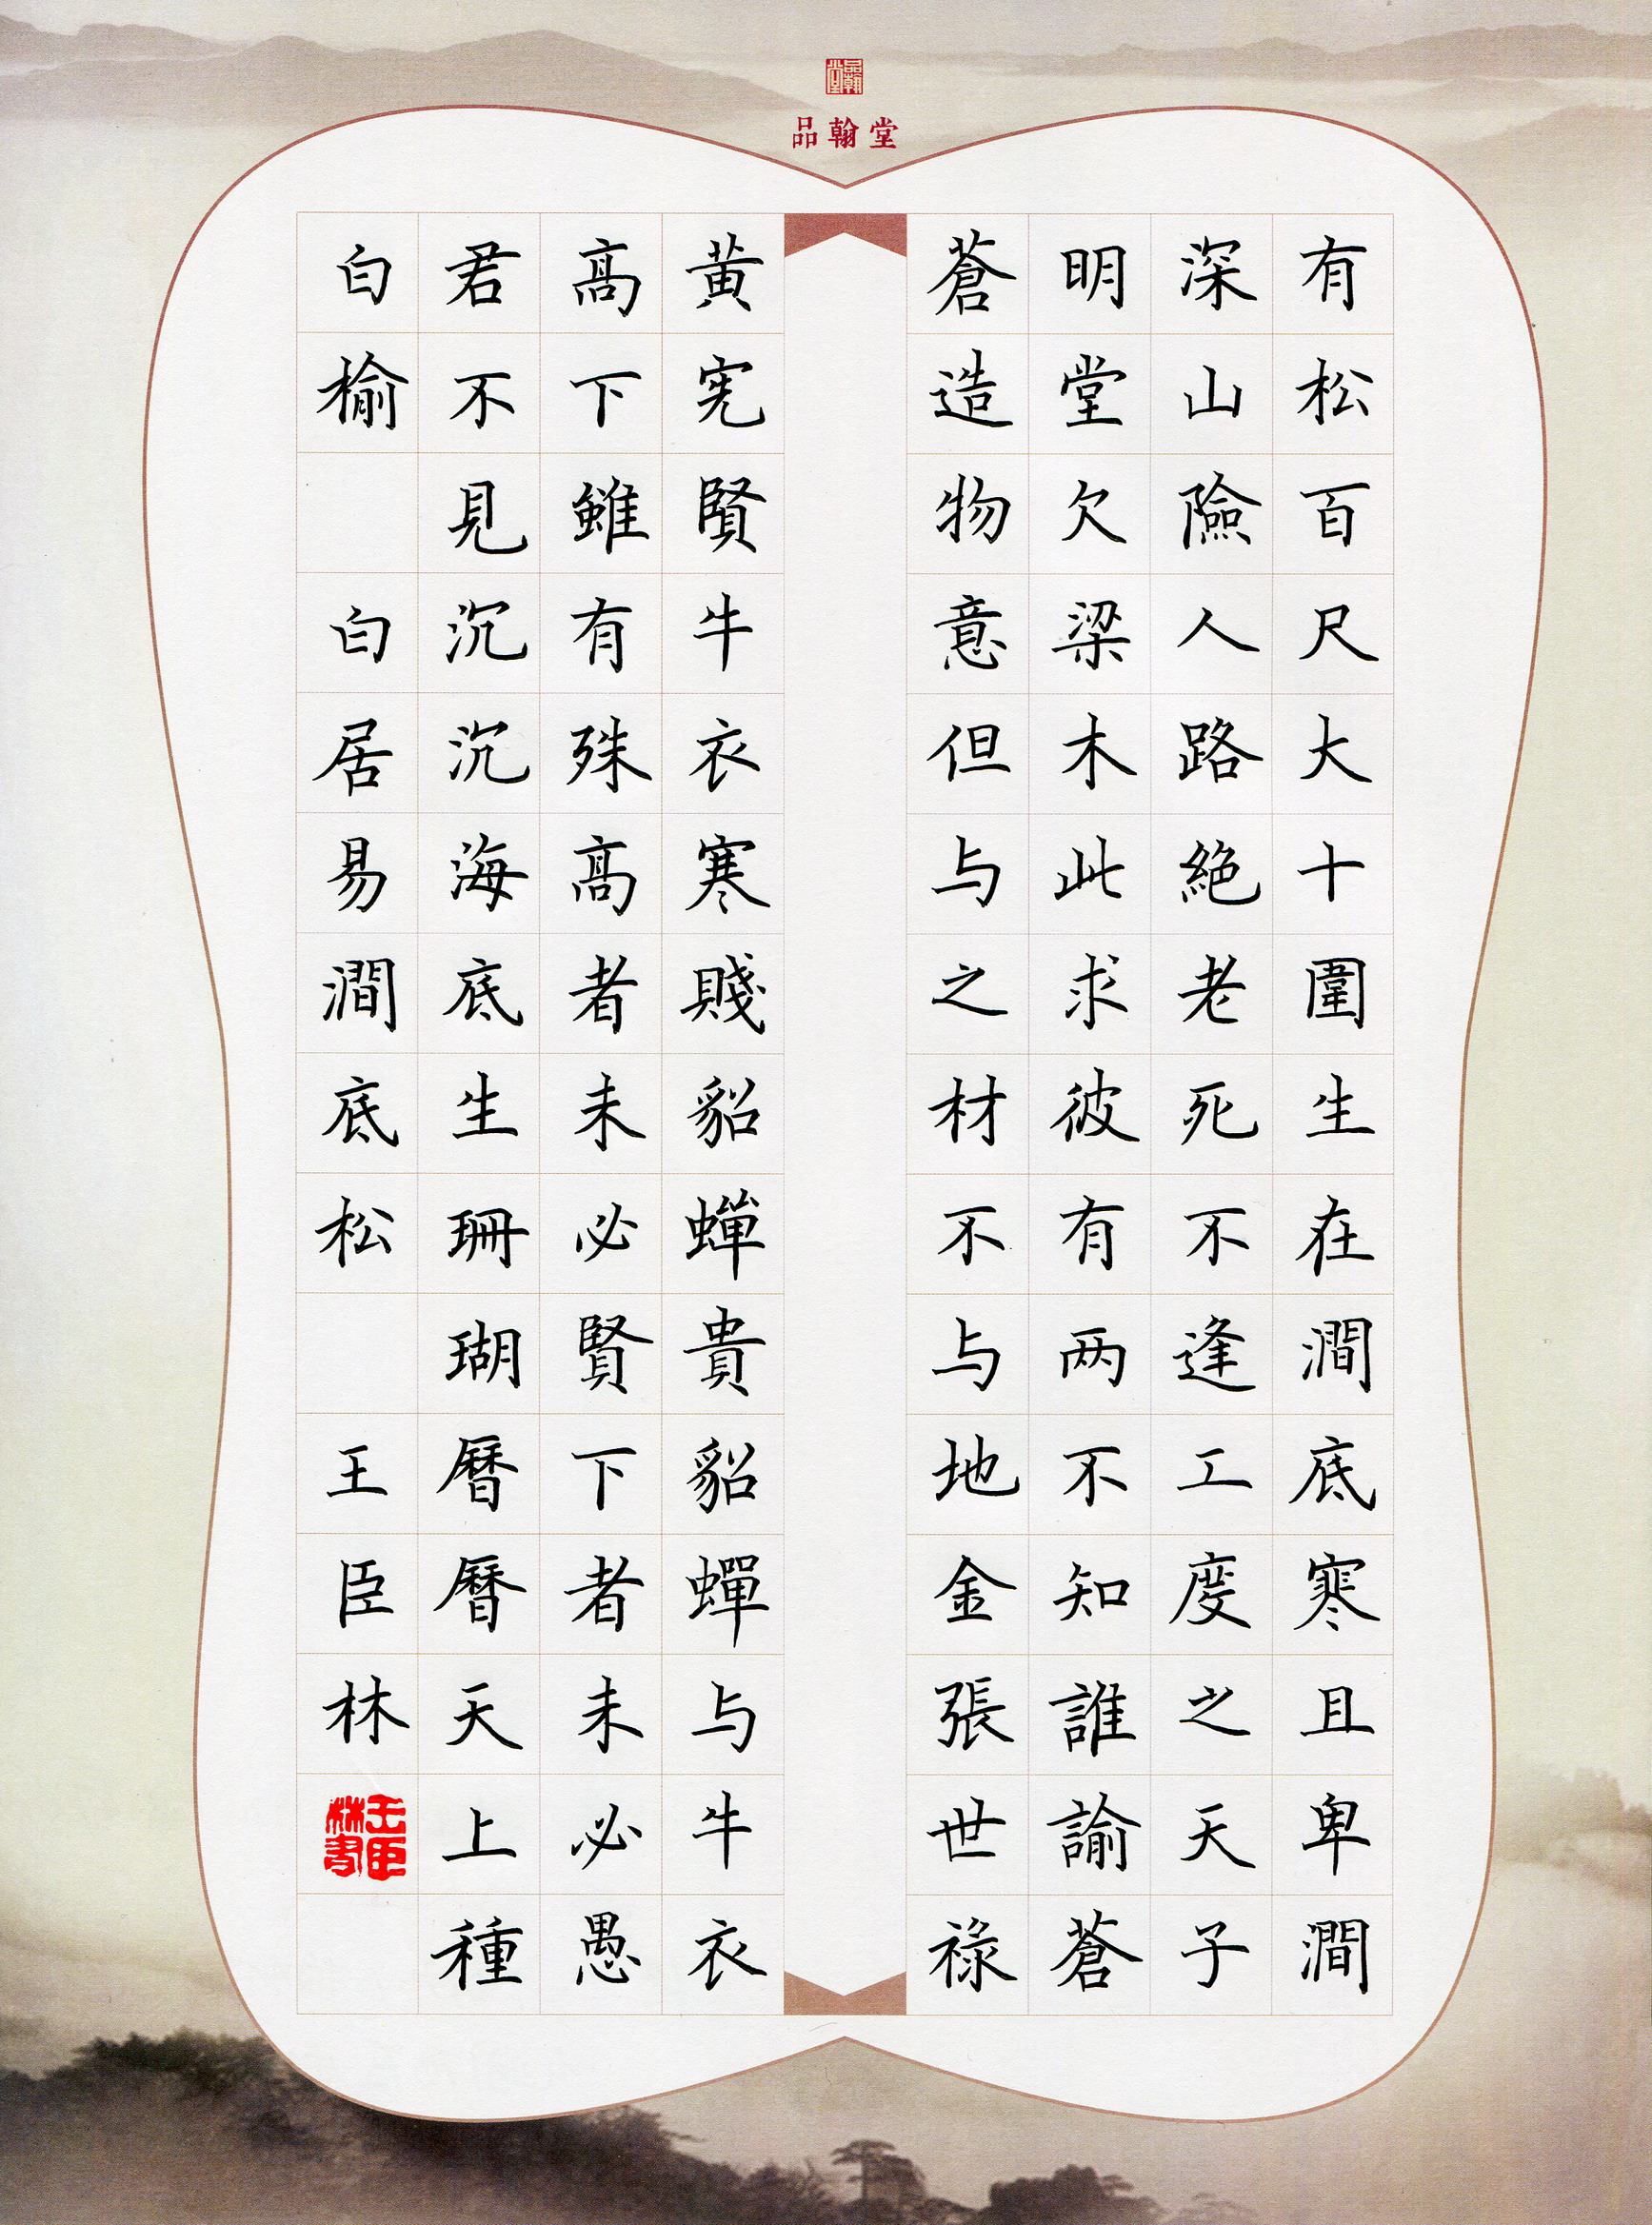 品翰堂
品翰堂
有松百尺大十圍生在澗底寒且卑澗
深山險人路絶老死不逢工度之天子
明堂欠梁木此求彼有两不知誰諭蒼
蒼造物意但与之材不与地金張世祿
黄宪賢牛衣寒賤貂蟬貴貂蟬与牛衣
髙下雖有殊髙者未必賢下者未必愚
君不見沉沉海底生珊瑚曆曆天上種
白榆 白居易澗底松 王臣林
王臣林書